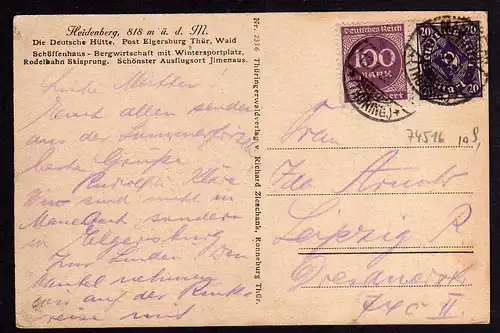 Heidenberg, 818 m ü. d. M.
Die Deutsche Hütte. Post Elgersburg Thür, Wald
Schöffenhaus - Bergwirtschaft mit Wintersportplatz,
Rodelbahn Skisprung. Schönster Ausflugsort Jimenaus.
Liebe Mutter!
Euch allen senden
aus der Sommerfrische
beste Grüße
Rudolf u. Kläre
Wir sind nicht in
sondern
in Elgersburg
zur Linden. Den
Mantel nehmen
wir auf der Rück-
reise mit
Nr. 2336 Thüringerwaldverlag v. Richard Zieschank, Ronneburg Thür.
Deutsches Reich
100
MARK
20 20
20 20
74516
Frau
Ida
Leipzig R
Dresdnerstr.
II.